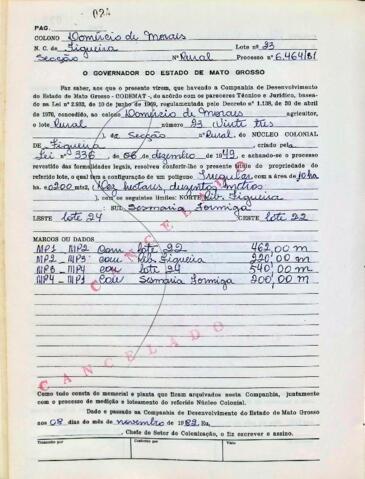 024
PAG.
COLONO Domércio de Morais
N. C. de Figueira Lote nº 23
Secção Nº Rural Processo nº 6.464/81
O GOVERNADOR DO ESTADO DE MATO GROSSO
Faz saber, aos que o presente virem, que havendo a Companhia de Desenvolvimento
do Estado de Mato Grosso - CODEMAT -, de acôrdo com os pareceres Técnico e Jurídico, basea-
do na Lei nº 2.933, de 10 de junho de 1969, regulamentada pelo Decreto nº 1.138, de 20 de abril
de 1970, concedido, ao colono Domércio de Morais agricultor,
o lote Rural número 23 Vinte três
de Secção Nº Rural. DO NÚCLEO COLONIAL
DE Figueira criado pela
Lei nº 336 de 06 de dezembro de 1949, e achando-se o processo
revestido das formalidades legais, resolveu conferir-lhe o presente título de propriedade do
referido lote, o qual tem a configuração de um polígono Irregular com a área de 10 ha
ha. 0200 mtrs2 (Dez hectares, duzentos metros
), com os seguintes limites: NORTE Rib. Figueira
SUL Sesmaria Formiga
LESTE lote 24 OESTE lote 22
MARCOS OU DADOS
MP1 - MP2 com lote 22 462,00 m
MP2 - MP3 com Rib. Figueira 220,00 m
MP3 - MP4 com lote 24 540,00 m
MP4 - MP1 Com Sesmaria Formiga 200,00 m
CANCELADO
CANCELADO
Como tudo consta do memorial e planta que ficam arquivados nesta Companhia, juntamente
com o processo de medição e loteamento do referido Núcleo Colonial.
Dado e passado na Companhia de Desenvolvimento do Estado de Mato Grosso
aos 08 dias do mês de novembro de 1982. Eu,
, Chefe do Setor de Colonização, o fiz escrever e assino.
Transcrito por Conferido por Visto